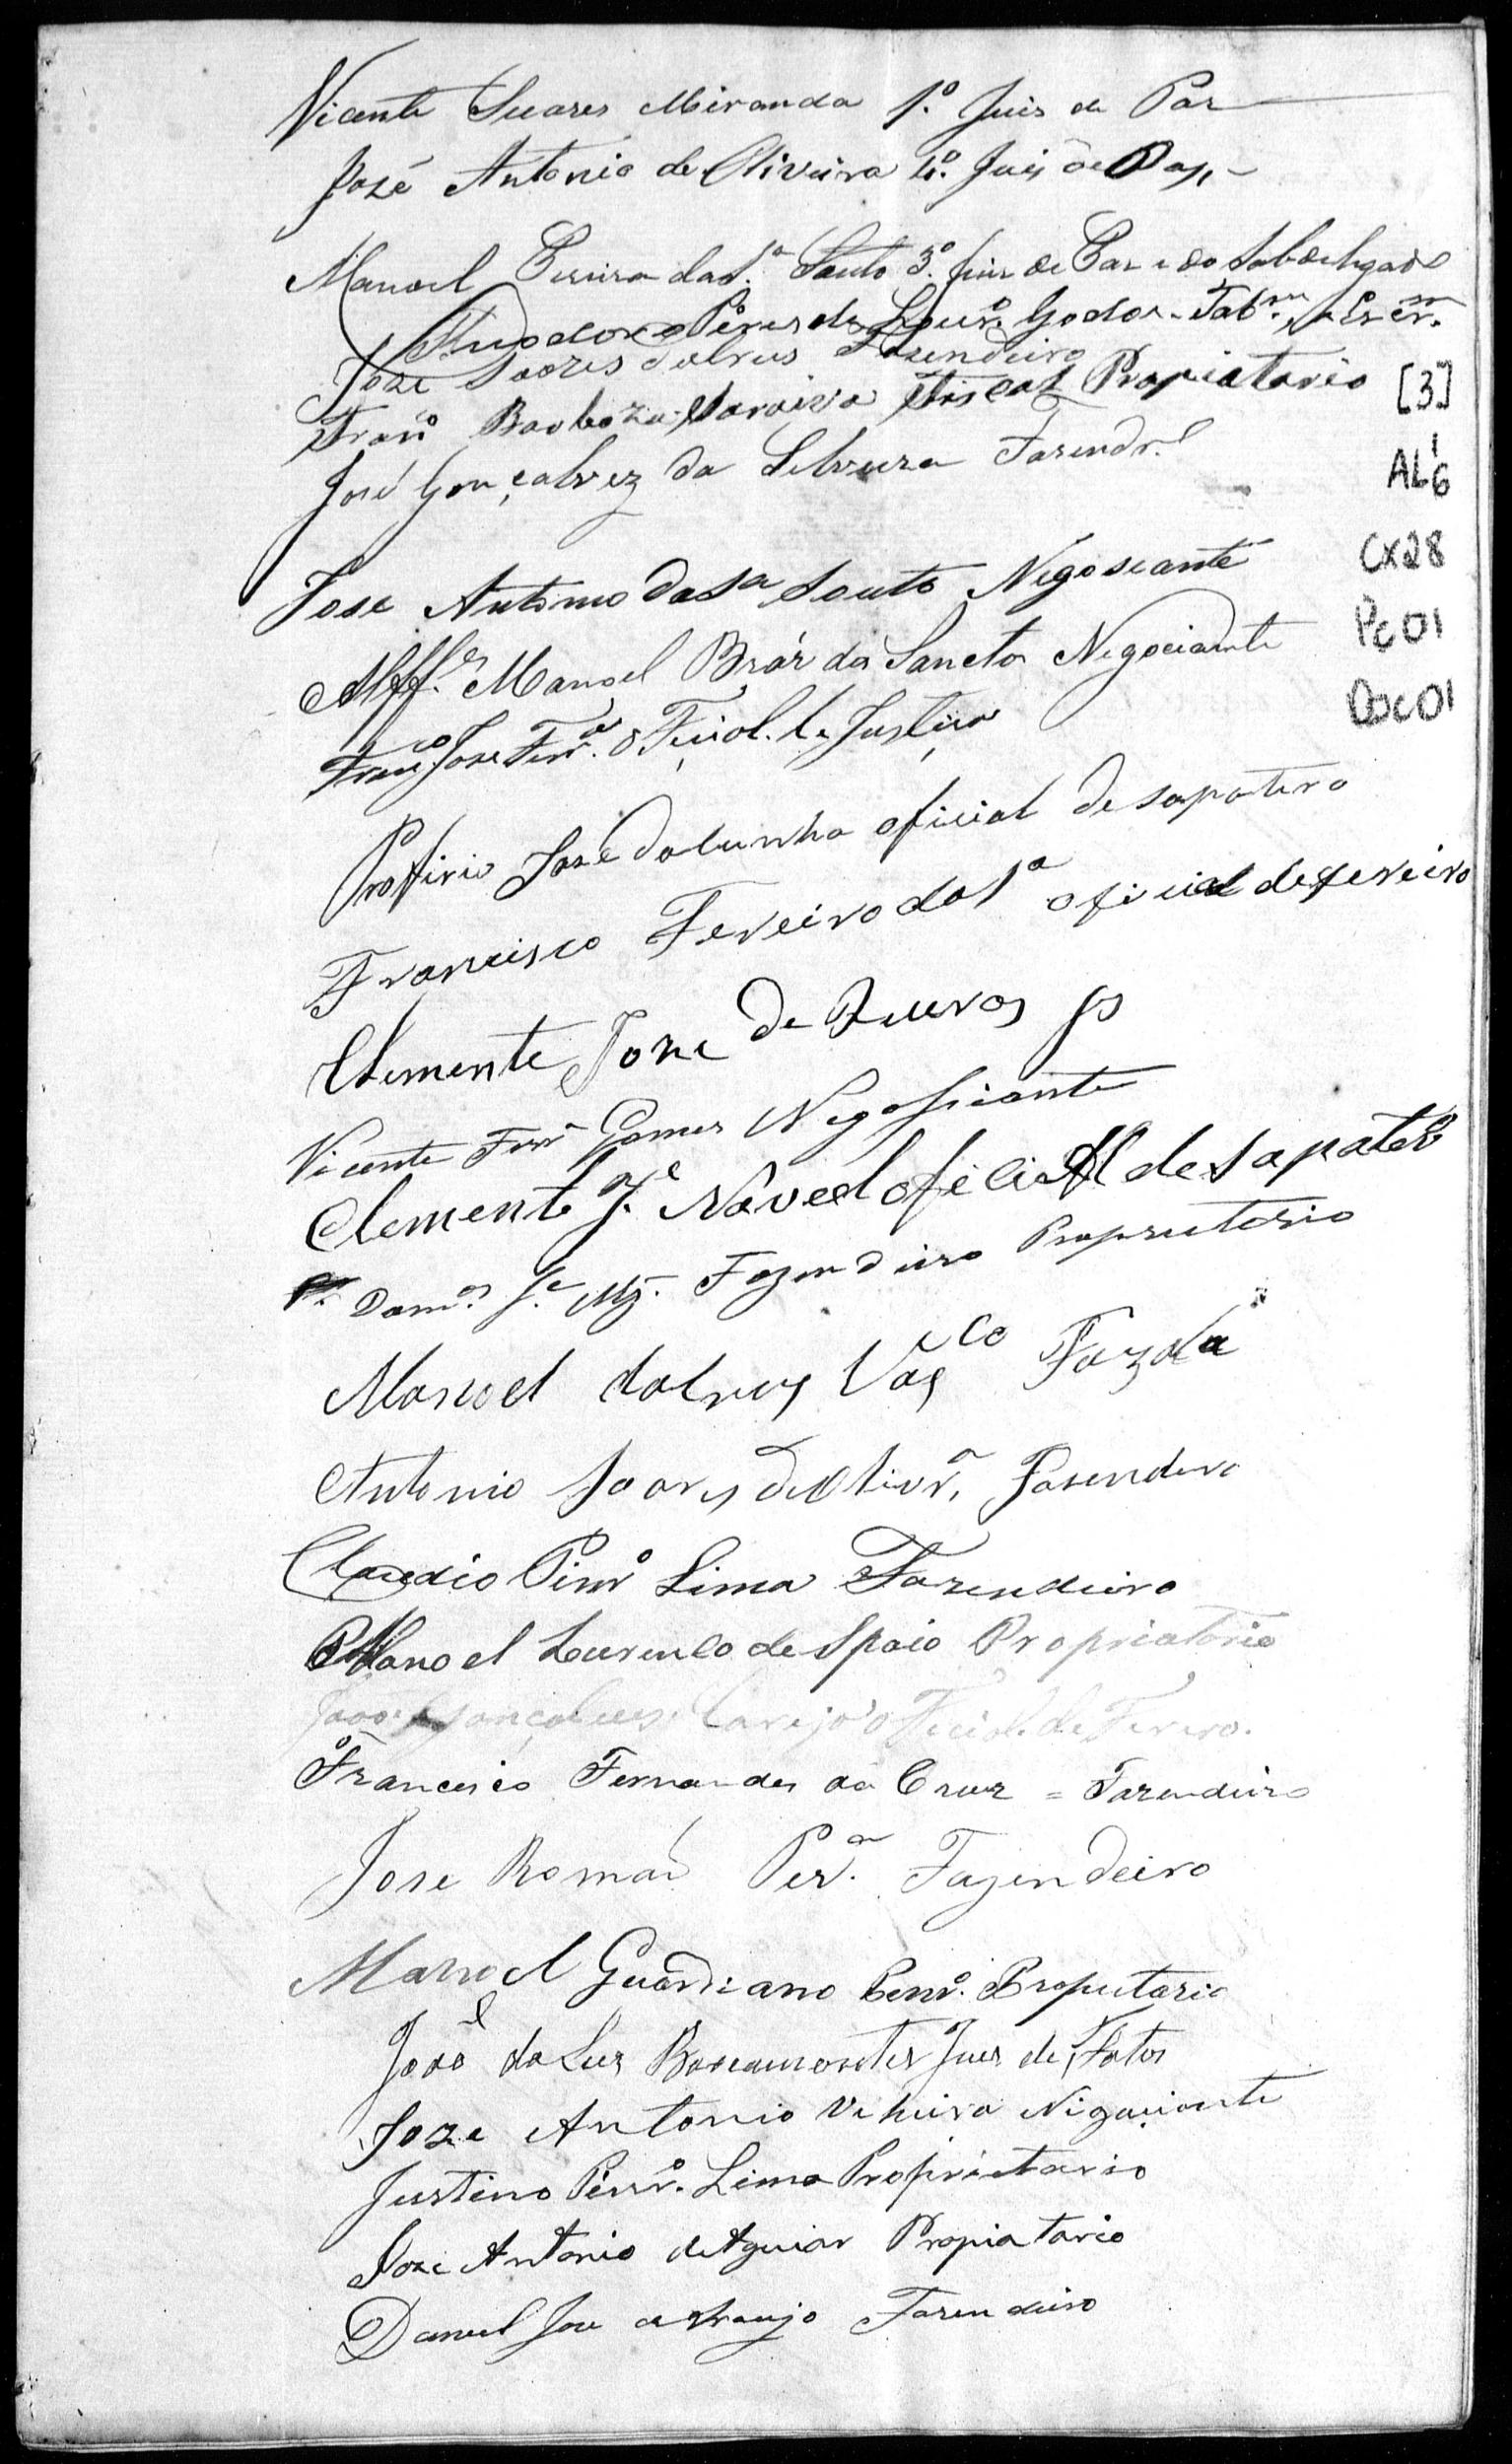 Vicente Suares Miranda 1º Juis de Pas
José Antonio de Oliveira 4º Juis de Pas
Manoel Pereira da Sª Souto 3º Juis de Pas e do Subdelgado
Theodoro Peres de Godoi Tabam Escram
Joze Soares dalves Fasendeiro
Franco Barboza Saraiva Fiscal Propiatario
[3]
José Gonçalvez da Silveira Fasendro
AL16
Jose Antonio da Sa Souto Negosiante
CX28
Alffes Manoel Bráz dos Sanctos Negociante
Pc01
Franco Jose Ferra Oficial de Justiça
Doc01
Profirio José da Cunha oficial de sapatero
Francisco Fereira da Sª oficial de fereiro
Clemente Joze de
Vicente Ferra Gomes Negosiante
Clemente Je Novael oficial de sapatero
Domos Je Mz. Fazendeiro Proprietario
Manoel dalves Vasco Fazda
Antonio Soares de Olivra Fasendero
Claudio Pinro Lima Fazendeiro
Manoel Lourenco de Propriatorio
João Gonçalves oficial de Ferero.
Francisco Fernandes da Cruz = Fazendeiro
Jose Romaõ Pera Fazendeiro
Manoel Proprietario
João da Lus Boncamontes Jues de Fatos
Joze Antonio Veheira Nigociante
Justino Pinro Lima Proprietario
Joze Antonio de Aguiar Propiatario
Daniel Joze de Araujo Fazendeiro